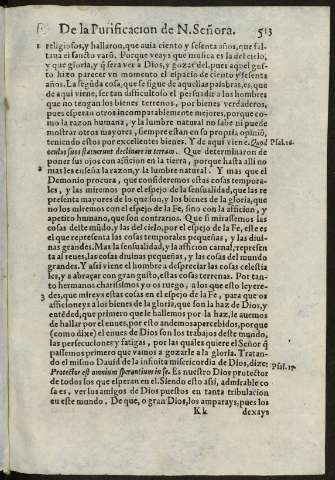 De la Purificacion de N. Señora. 513
religiosos, y hallaron, que auia ciento y sesenta años, que fal-
taua el sancto varõ. Porque veays que musica es la del cielo,
y que gloria, y q̃ sera ver a Dios, y gozar del, pues aquel gus-
to hizo parecer vn momento el espacio de ciento y sesenta
años. La segũda cosa, que se sigue de aquellas palabras, es, que
de aqui viene, ser tan dificultoso el persuadir a los hombres
que no tengan los bienes terrenos, por bienes verdaderos,
pues esperan otros incomparablemente mejores, porque co-
mo la razon humana, y la lumbre natural no sabe ni puede
mostrar otros mayores, siempre estan en su propria opiniõ,
teniendo estos por excelentes bienes. Y de aqui viene. Quod Psal. 16.
oculos suos statuerunt declinare in terram. Que determinaron de
poner sus ojos con afficion en la tierra, porque hasta alli no
mas les enseña la razon, y la lumbre natural. Y mas que el
Demonio procura, que consideremos estas cosas tempora-
les, y las miremos por el espejo de la sensualidad, que las re
presenta mayores de lo que son, y los bienes de la gloria, que
no los miremos con el espejo de la Fe, sino con la afficion, y
apetito humano, que son contrarios. Que si mirassemos las
cosas deste mũdo, y las del cielo, por el espejo de la Fe, este es
el que representa las cosas temporales pequeñas, y las diui-
nas grandes. Mas la sensualidad, y la afficion carnal, represen
ta al reues, las cosas diuinas pequeñas, y las cosas del mundo
grandes. Y assi viene el hombre a despreciar las cosas celestia
les, y a abraçar con gran gusto, estas cosas terrenas. Por tan-
to hermanos charissimos yo os ruego, a los que esto leyere-
3 des, que mireys estas cosas en el espejo de la Fe, para que os
afficioneys a los bienes de la gloria, que son la haz de Dios, y
entẽded, que primero que le hallemos por la haz, le auemos
de hallar por el enues, por esto andemos apercebidos, porque
(como dixe) el enues de Dios son los trabajos deste mundo,
las persecuciones y fatigas, por las quales quiere el Señor q̃
passemos primero que vamos a gozarle a la gloria. Tratan-
do el mismo Dauid de la infinita misericordia de Dios, dize: Psal. 17.
Protector est omnium sperantium in se. Es nuestro Dios protector
de todos los que esperan en el. Siendo esto assi, admirable co
sa es, ver los amigos de Dios puestos en tanta tribulacion
en este mundo. De que, o gran Dios, los amparays, pues los
Kk dexays